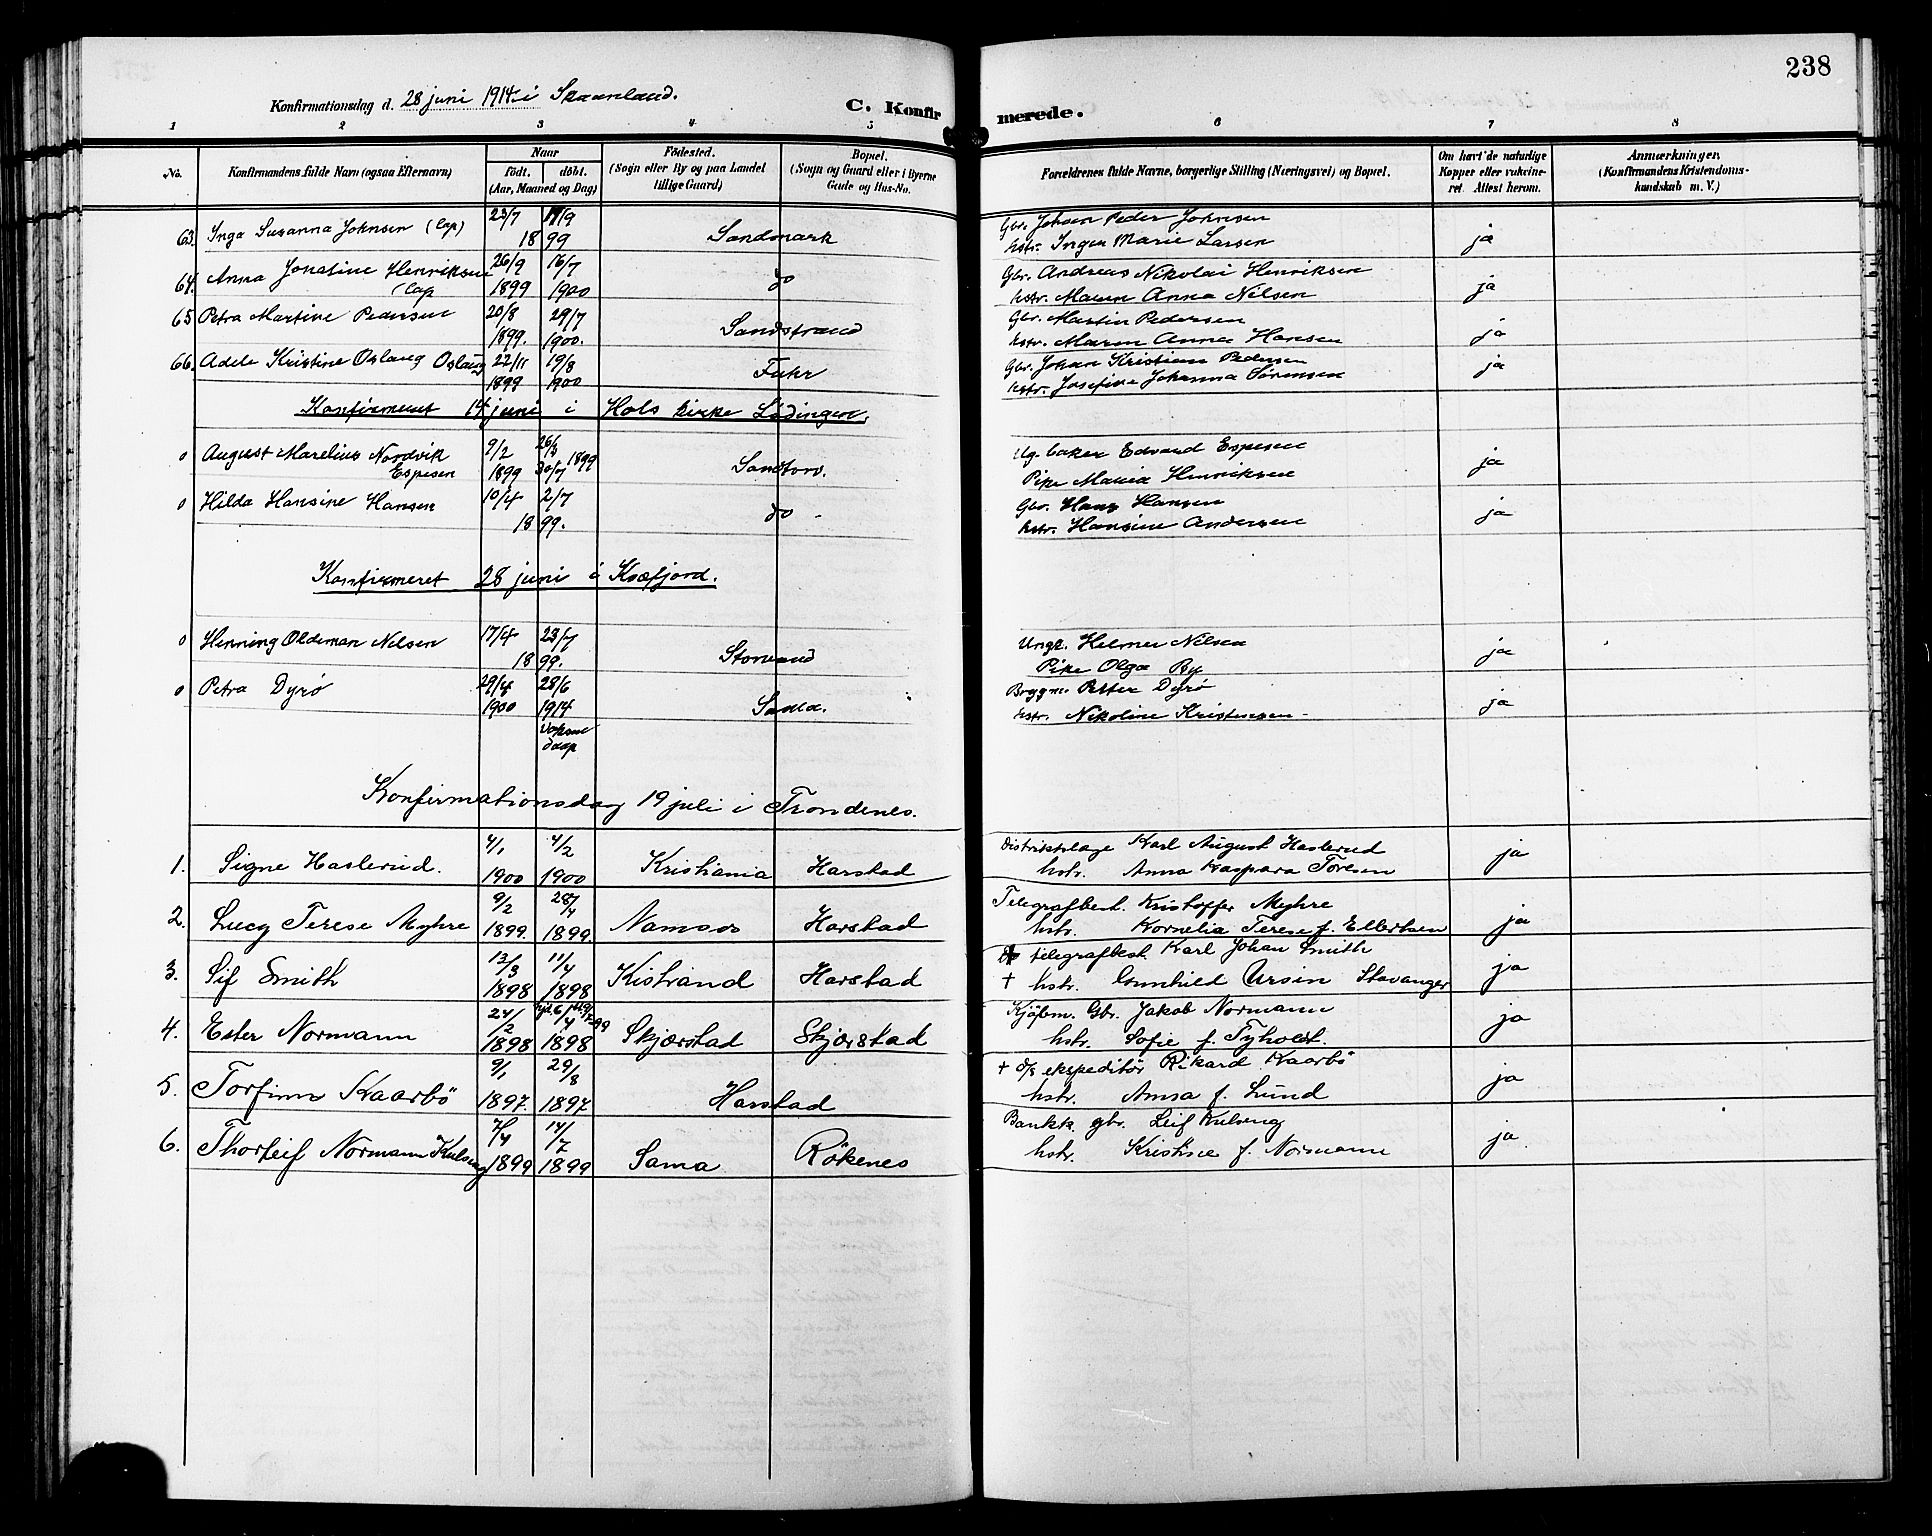 238
Konfirmationsdag d. 28 juni 1914 i Skaanland.
C. Konfirmerede.
1 2 3 4 5 6 7 8
No. Konfirmandens fulde Navn (ogsaa Efternavn) Naar født. døbt. (Aar, Maaned og Dag) Fødested. (Sogn eller By og paa Landet tillige Gaard) Bopæl. (Sogn og Gaard eller i Byerne Gade og Hus-No. Forældrenes fulde Navne, borgerlige Stilling (Næringsvei) og Bopæl. Om havt de naturlige Kopper eller vakcineret. Attest herom. Anmærkninger. (Konfirmandens Kristendomskundskab m. V.)
63. Inga Susanna Johnsen (Lap) 23/7 17/9 Gbr. Johan Peder Johnsen
18 99 Sandmark hstr. Inger Marie Larsen ja
64. Anna Jonetine Henriksen 26/9 16/7 Gbr. Andreas Nikolai Henriksen
(Lap 1899 1900 do hstr. Maren Anna Nilsen ja
65 Petra Martine Pedersen 20/8 29/7 Gbr. Martin Pedersen
1899. 1900. Sandstrand hstr. Maren Anna Hansen ja
66. Adele Kristine Oslaug Oslaug 22/11 19/8 Gbr. Johan Kristian Pedersen
1899 1900 Fuhr hstr. Josefine Johanna Sørensen ja
Konfirmeret 14 juni i Hols kirke Lødingen.
0 August Marelius Nordvik 9/2 26/3 Ug. baker Edvard Espesen
Espesen 1899 30/7 1899 Sandtorv. Pike Maria Henriksen ja
0 Hilda Hansine Hansen 10/4 2/7 Gbr. Hans Hansen
18 99. do - hstr. Hansine Andersen ja
Konfirmeret 28 juni i Kvæfjord.
0 Henning Oldeman Nilsen 17/4 23/7 Ungk. Helmer Nilsen
18 99. Storvand Pike Olga By ja
0 Petra Dyrø 29/4 28/6 Byggm. Petter Dyrø
1900 1914 Sama. hstr. Nikoline Kristensen - ja
Voksne
daap
Konfirmationsdag 19 juli i Trondenes.
4/1 4/2 Distriktslæge Karl August Haslerud
1. Signe Haslerud. 1900 1900 Kristiania Harstad hstr. Anna Kaspara Toresen ja
9/2 28/4 Telegrafbest. Kristoffer Myhre
2. Lucy Terese Myhre 1899. 1899. Namsos Harstad hstr. Kornelia Terese f. Ellertsen ja
13/3 11/4 telegrafbest. Karl Johan Smith
3. Sif Smith 1898 1898 Kistrand Harstad + hstr. Gunhild Ursin Stavanger ja
24/2 Kjøbm. Gbr. Jakob Normann
4. Ester Normann 1898 1898 Skjærstad Skjærstad hstr. Sofie f. Tyholdt. ja
9/1 29/8 + d/s ekspeditør Rikard Kaarbø
5. Torfinn Kaarbö 1897. 1897 Harstad hstr. Anna f. Lund ja
14/7 Bankk. gbr. Leif Kulseng
6. Thorleif Normann Kulseng 1899 1899 Sama Rökenes hstr. Kristine f. Normann ja